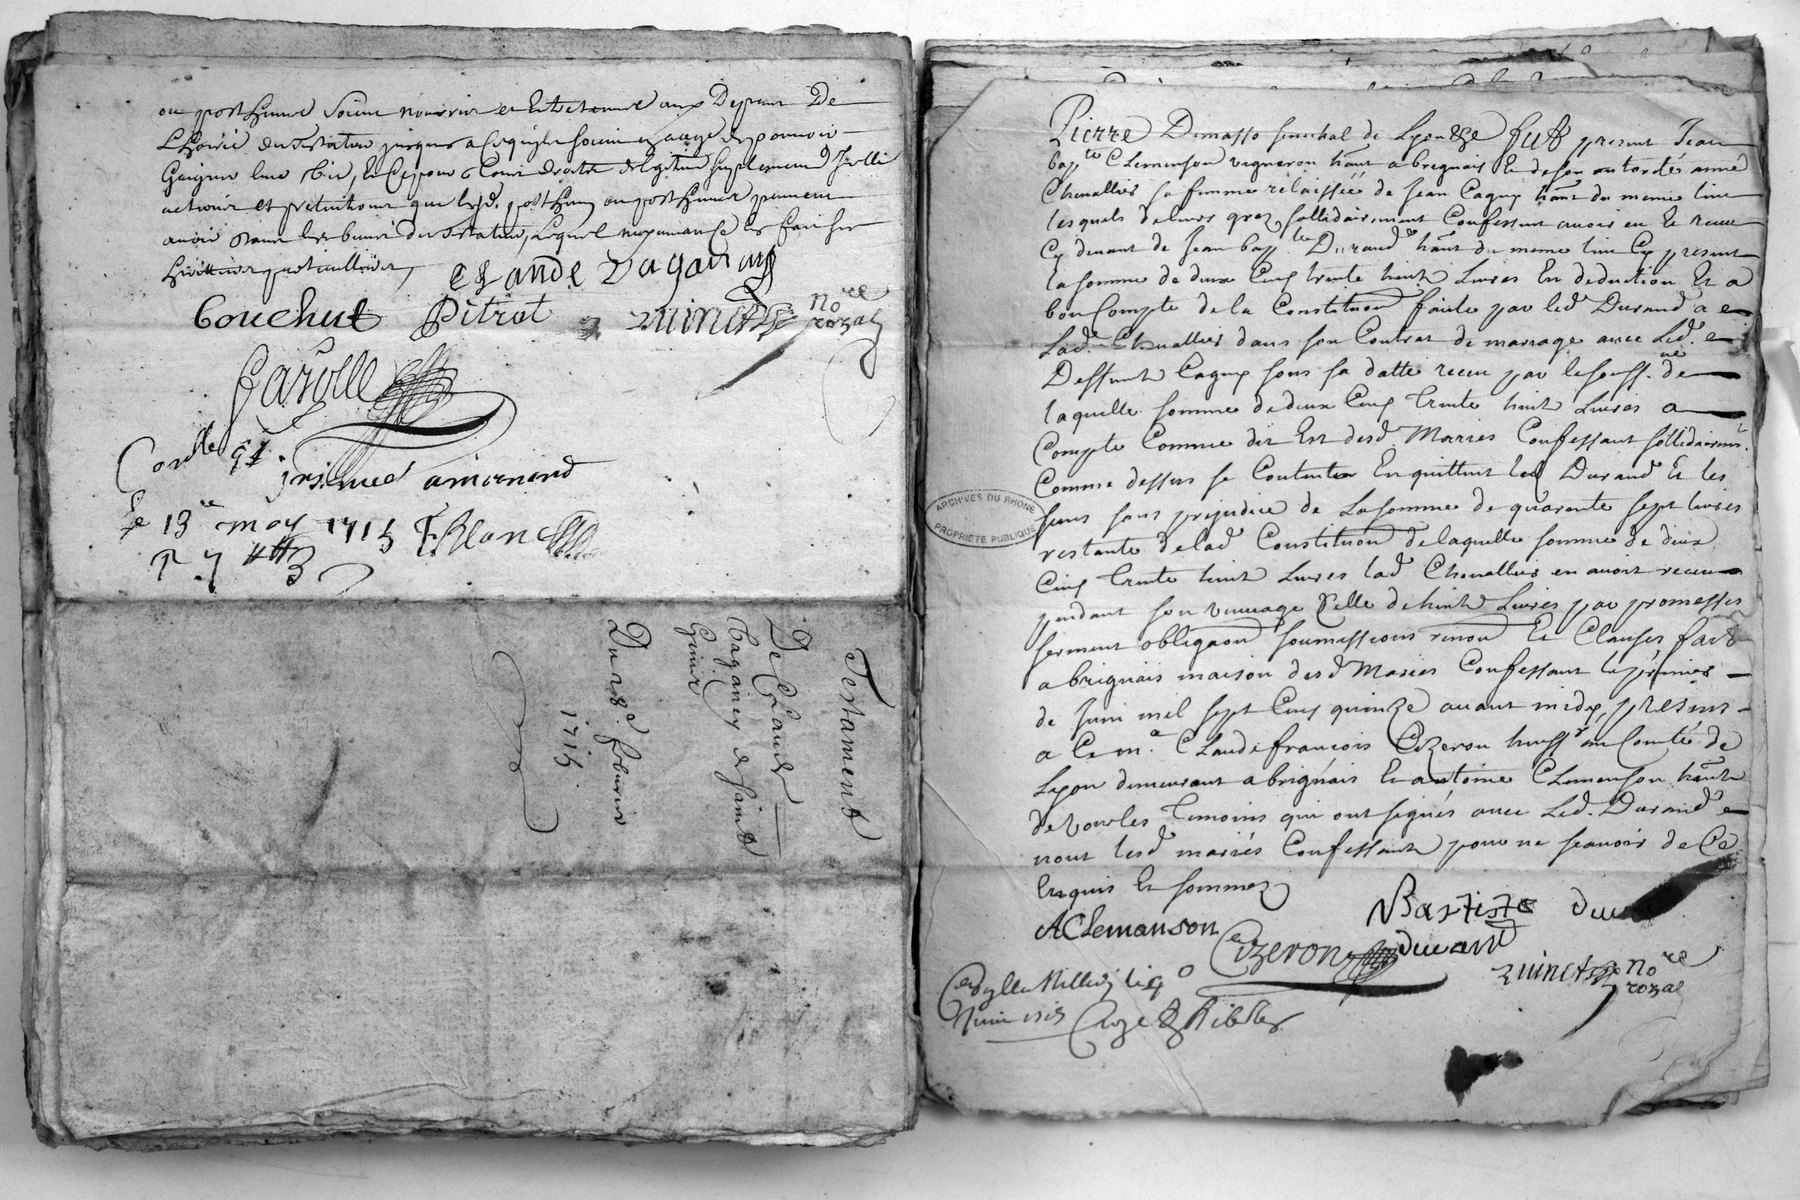 ou posthume soient nourris et entretenus aux depens de
L'hoirie du testateur jusques a ce qu'ils soient en aage de pouvoir
Gaigner leur vie, et ce pour tous droits de legitime suplement d'icelle
actions et pretentions que lesd. posthume ou posthumes pourroient
avoir dans les biens du testateur, lequel moyennant ce les fait ses
heritiers particulliers,
CLAUDE DAGANAY
Couchut Pitrat Quinet No.re
royal
Farolle
Con.lle et
insinué a mornand
Le 13e may 1715 F. Blanc
R 7
Testament
De Claude
Daganey de saint
Genis
Du 28 febvrier
1715
Pierre Demasso senechal de Lyon &c fut present Jean
bap.te Clemenson vigneron hant a brignais et de son autorité anne
Chevallier sa femme relaissée de Jean Cagny hant du meme lieu
lesquels de leurs grez sollidairement Confessent avoir eu et receu
Cy devant de Jean bap.te Durand hant du meme lieu Cy present
la somme de deux Cens trente huit Livres En deduction Et a
bon Compte de la Constitution faite par led Durand a
Lad. Chevallier dans son Contrat de mariage avec Led.
Deffunt Cagny sous sa datte receu par le souss.né de
laquelle somme de deux Cens trente huit Livres a
Compte Comme dit Est lesd. Mariés Confessant sollidairem.t
Comme dessus se Contentent En quittent led Durand Et les
siens sans prejudice de La somme de quarante sept livres
restante de lad Constitution de laquelle somme de deux
Cens trente huit Livres lad Chevallier en avoit receu
pendant son veuvage Celle de huit Livres par promesses
serment obligaon soumissions renon Et Clauses fait
a brignais maison desd Mariés Confessant le premier
de Juin mil sept Cens quinze avant midy, presens
a Ce m.e Claude françois Cizeron huiss.r au Comté de
Lyon demeurant a brignais Et antoine Clemenson hant
de vourles Temoins qui ont signés avec Led. Durand
non lesd mariés Confessant pour ne scavoir de Ce
Enquis Et sommez
AClemanson Bastiste du
Cizeron durand
Quinet No.re
royal
ARCHIVES DU RHONE
PROPRIÉTÉ PUBLIQUE
Juin 1715